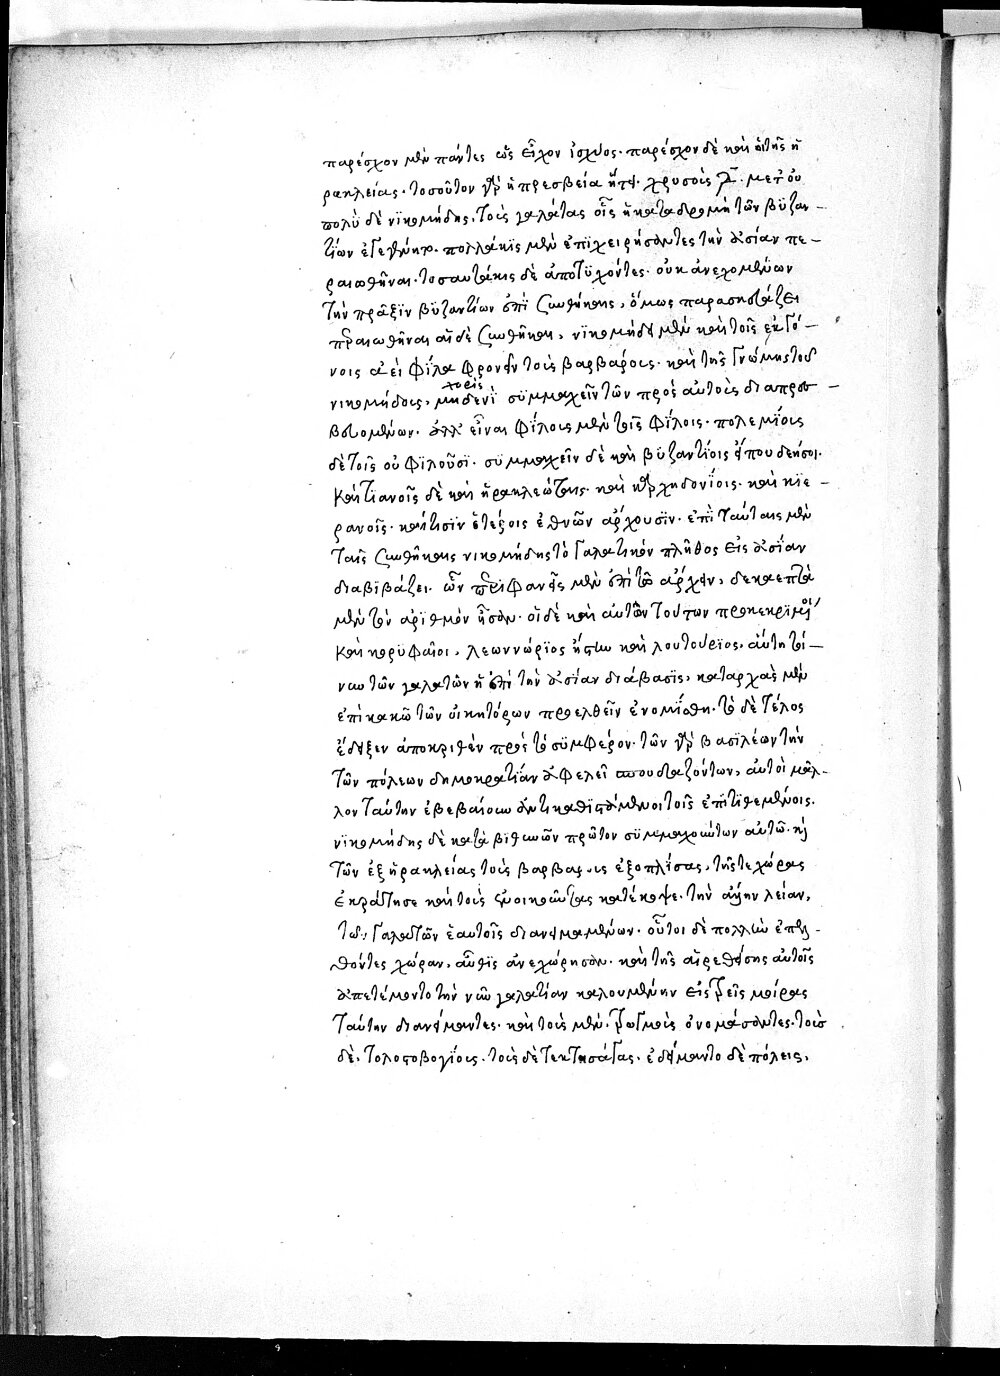 παρέσχον μὲν πάντες ὡς εἶχον ἰσχύος· παρέσχον δὲ καὶ οἱ τῆς ἡ
ρακλείας· τοσοῦτον γὰρ ἡ πρεσβεία ᾔτει· χρυσοῦς ͵δ· μετ' οὐ
πολὺ δὲ νϊκομήδης, τοὺς γαλάτας οἷς ἡ καταδρομὴ τῶν βϋζαν –
τίων ἐγεγένητο· πολλάκϊς μὲν ἐπϊχειρήσαντες τὴν ἀσίαν πε –
ραιωθῆναι· τοσαυτάκις δὲ ἀποτϋχόντες· οὐκ ἀνεχομένων
τὴν πρᾶξϊν βϋζαντίων ἐπὶ συνθήκαις, ὅμως παρασκευάζει
περαιωθῆναι αἱ δὲ συνθῆκαι, νϊκομήδει μὲν καὶ τοῖς ἐκγό –
νοις ἀεὶ φίλα φρονεῖν τοὺς βαρβάρους· καὶ τῆς γνώμης τοῦ
νικομήδους, χωρὶς μηδενὶ συμμαχεῖν τῶν πρὸς αὐτοὺς διαπρεσ –
βευομένων· ἀλλ' εἶναι φίλους μὲν τοῖς φίλοις· πολεμίους
δὲ τοῖς οὐ φιλοῦσϊ· συμμαχεῖν δὲ καὶ βϋζαντίοις εἴπου δεήσοι·
καὶ τιανοῖς δὲ καὶ ἡρακλεώταις· καὶ καρχηδονίοις· καὶ κϊε –
ρανοῖς· καὶ τισϊν ἑτέροις ἐθνῶν ἄρχουσϊν· ἐπὶ ταύταις μὲν
ταῖς συνθήκαις νικομήδης τὸ γαλατικὸν πλῆθος εἰς ἀσίαν
διαβϊβάζει· ὧν περιφανεῖς μὲν ἐπὶ τῶ ἄρχειν, δεκαεπτὰ
μὲν τὸν ἀρϊθμὸν ἦσαν· οἱ δὲ καὶ αὐτῶν τούτων προκεκριμένοι
καὶ κορϋφαῖοι, λεωννώριος ἤστην καὶ λουτούριος, αὕτη τοί –
νυν τῶν γαλατῶν ἡ ἐπὶ τὴν ἀσίαν διάβασϊς, καταρχὰς μὲν
ἐπὶ κακῶ τῶν οἰκητόρων προελθεῖν ἐνομίσθη· τὸ δὲ τέλος
ἔδειξεν ἀποκριθὲν πρὸς τὸ σϋμφέρον· τῶν γὰρ βασϊλέων τὴν
τῶν πόλεων δημοκρατίαν ἀφελεῖν σπουδαζόντων, αὐτοὶ μᾶλ –
λον ταύτην ἐβεβαίουν ἀντικαθϊστάμενοι τοῖς ἐπϊτϊθεμένοις·
νϊκομήδης δὲ κατὰ βϊθυνῶν πρῶτον σϋμμαχούντων αὐτῶ· καὶ
τῶν ἐξ ἡρακλείας τοὺς βαρβάρους ἐξοπλίσας, τῆς τε χώρας
ἐκράτησε καὶ τοὺς ἐνοικοῦντας κατέκοψε· τὴν ἄλλην λείαν,
τῶν γαλατῶν ἑαυτοῖς διανειμαμένων· οὗτοι δὲ πολλὴν ἐπελ –
θόντες χώραν, αὖθϊς ἀνεχώρησαν· καὶ τῆς αἱρεθείσης αὐτοῖς
ἀπετέμοντο τὴν νῦν γαλατίαν καλουμένην εἰς τρεῖς μοίρας
ταύτην διανείμαντες· καὶ τοὺς μὲν· τρωγμοὺς ὀνομάσαντες· τοὺς
δὲ, τολοστοβογίους· τοὺς δὲ τεκτησάγας· ἐδείμαντο δὲ πόλεις,